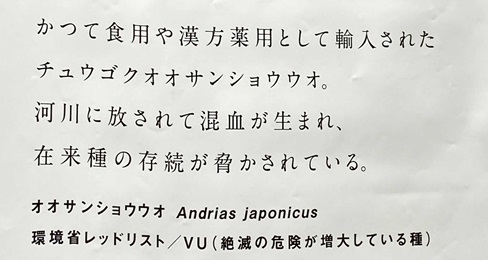 かつて食用や漢方薬用として輸入された
チュウゴクオオサンショウウオ。
河川に放されて混血が生まれ、
在来種の存続が脅かされている。
オオサンショウウオ Andrias japonicus
環境省レッドリスト／VU（絶滅の危険が増大している種）